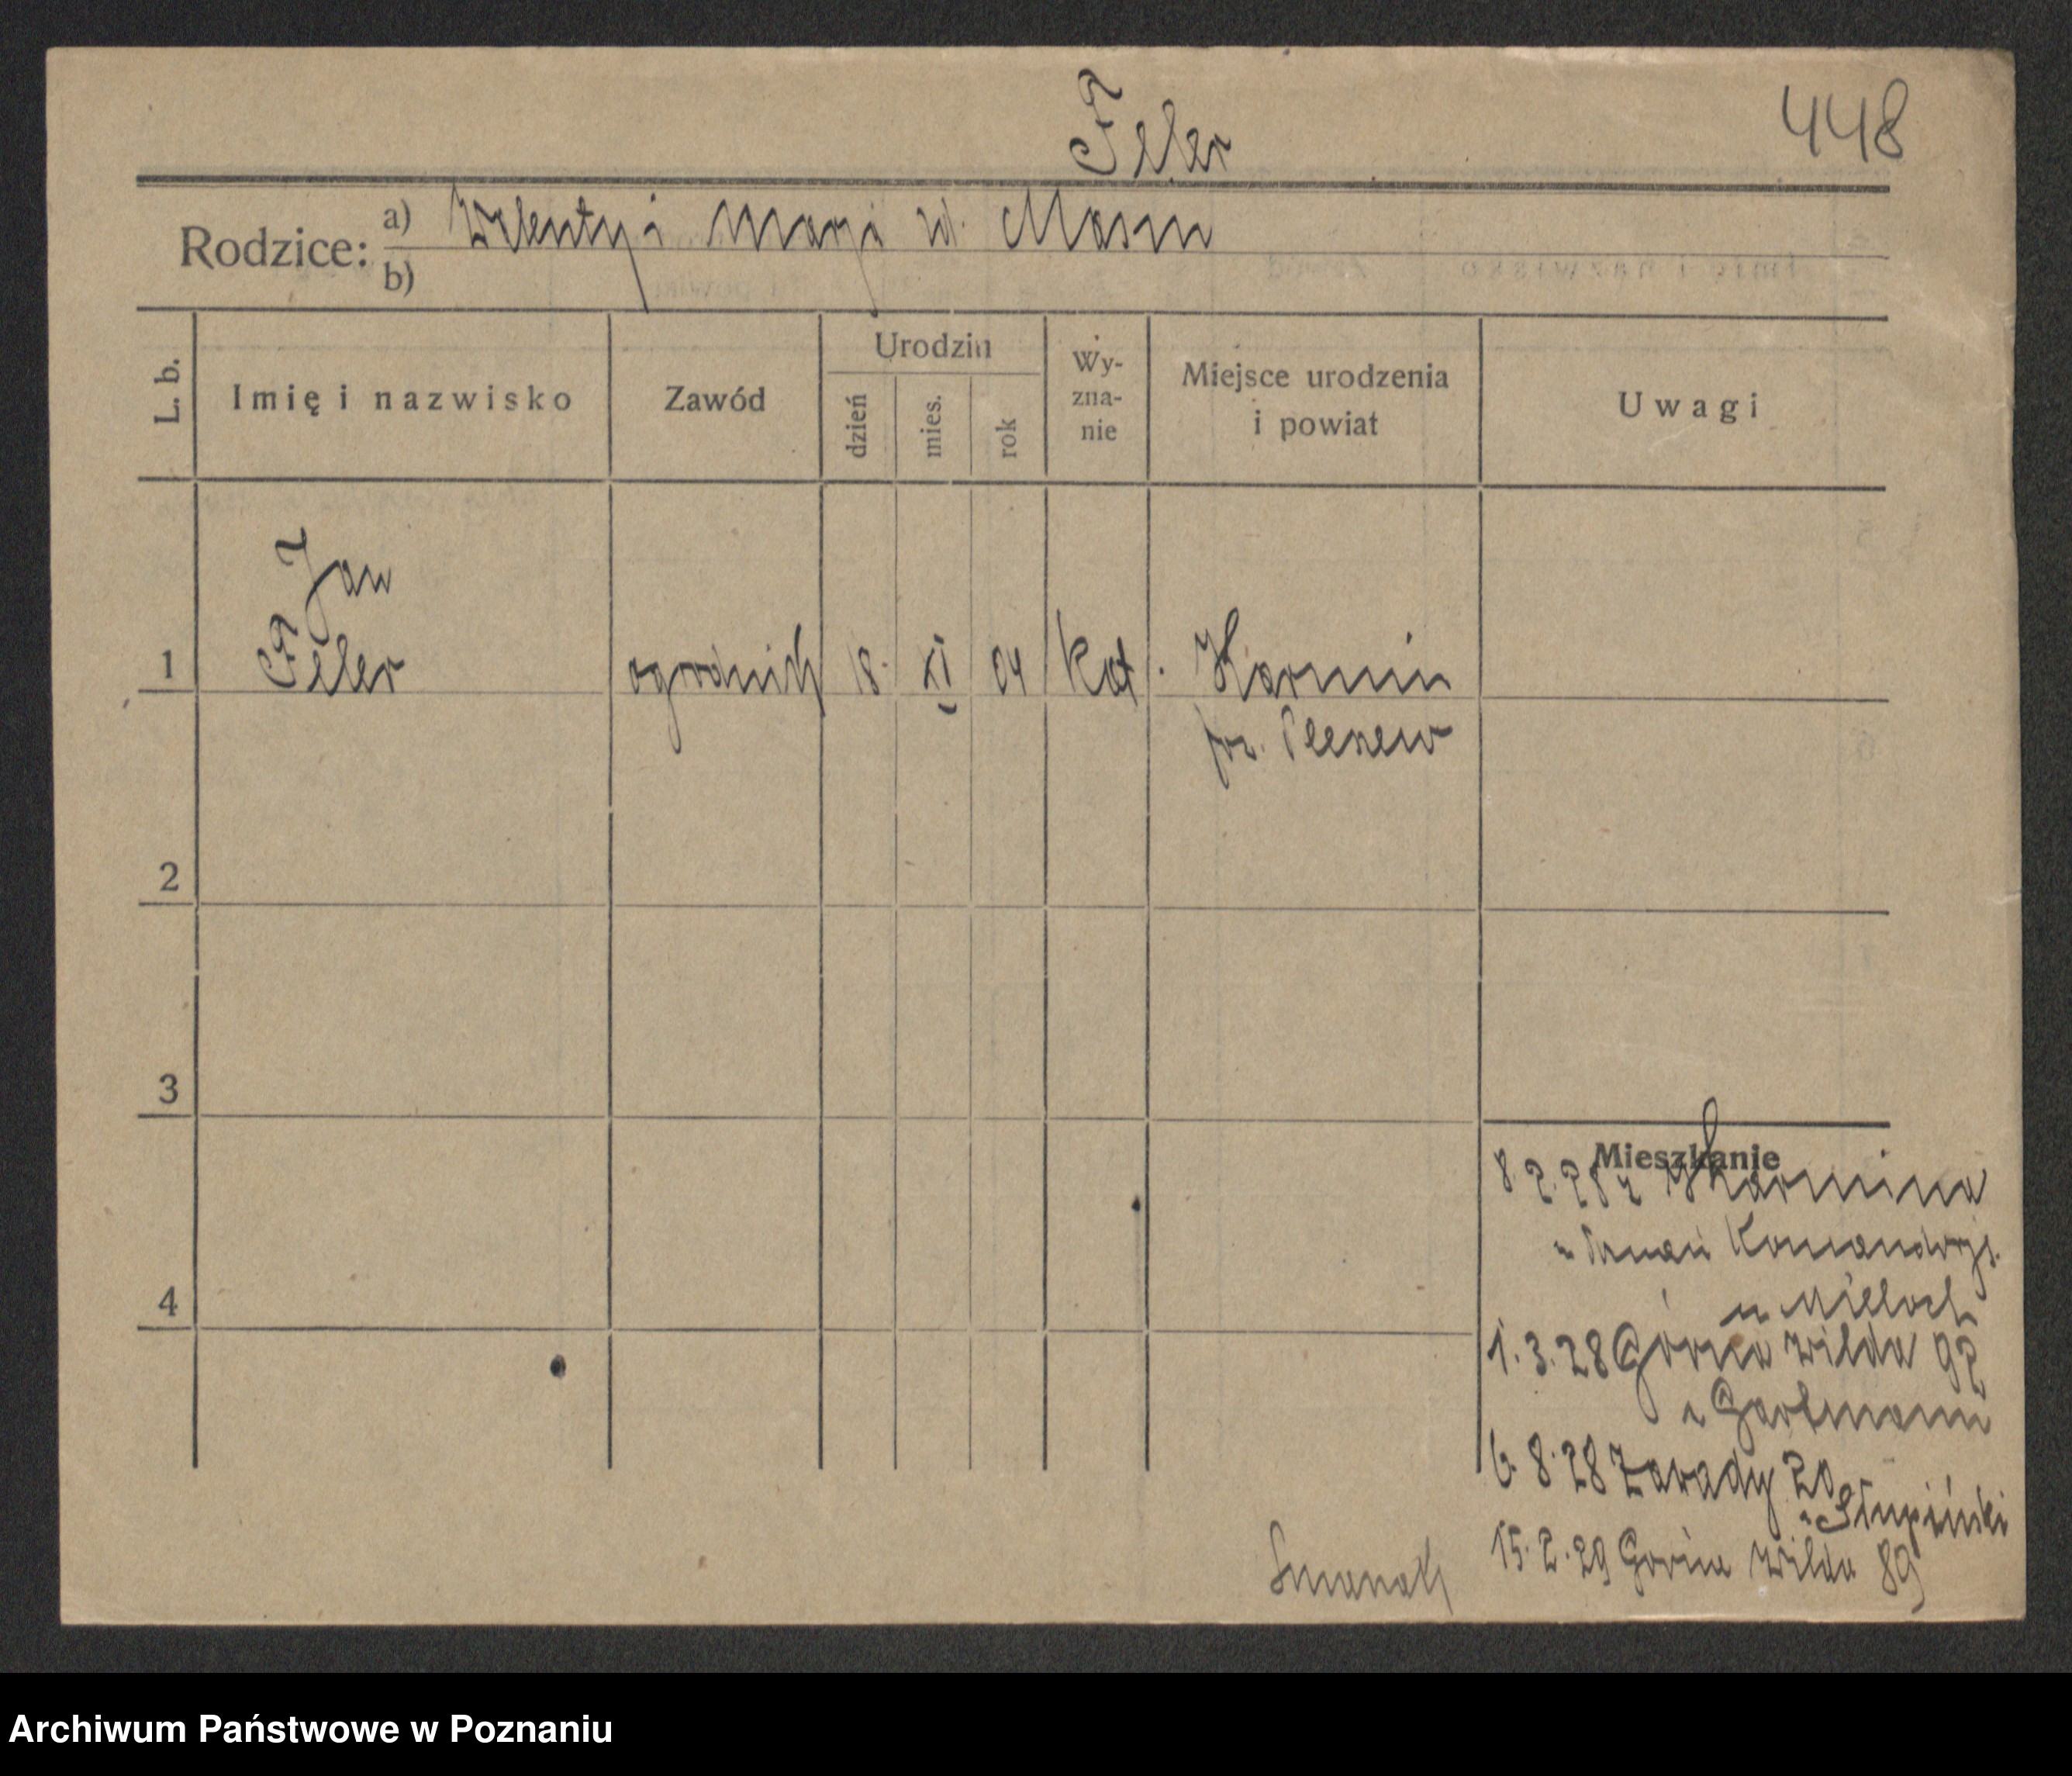 Feler
448
Rodzice: a) Walenty i Marja zd. Masm
b)
L. b. Imię i nazwisko Zawód Urodzin dzień mies. rok Wy-zna-nie Miejsce urodzenia i powiat Uwagi
Jan
1 Feler ogrodnik 18. XI 04 kat. Karmin
pow. Pleszew
2
3
Mieszkanie
8.2.28 z Karmina
Komandorja.
u Mieloch
4
1.3.28 Górna Wilda 92
u Gartmann
6.8.28 Zawady 20
u Słupiński
15.2.29 Górna Wilda 89
Archiwum Państwowe w Poznaniu